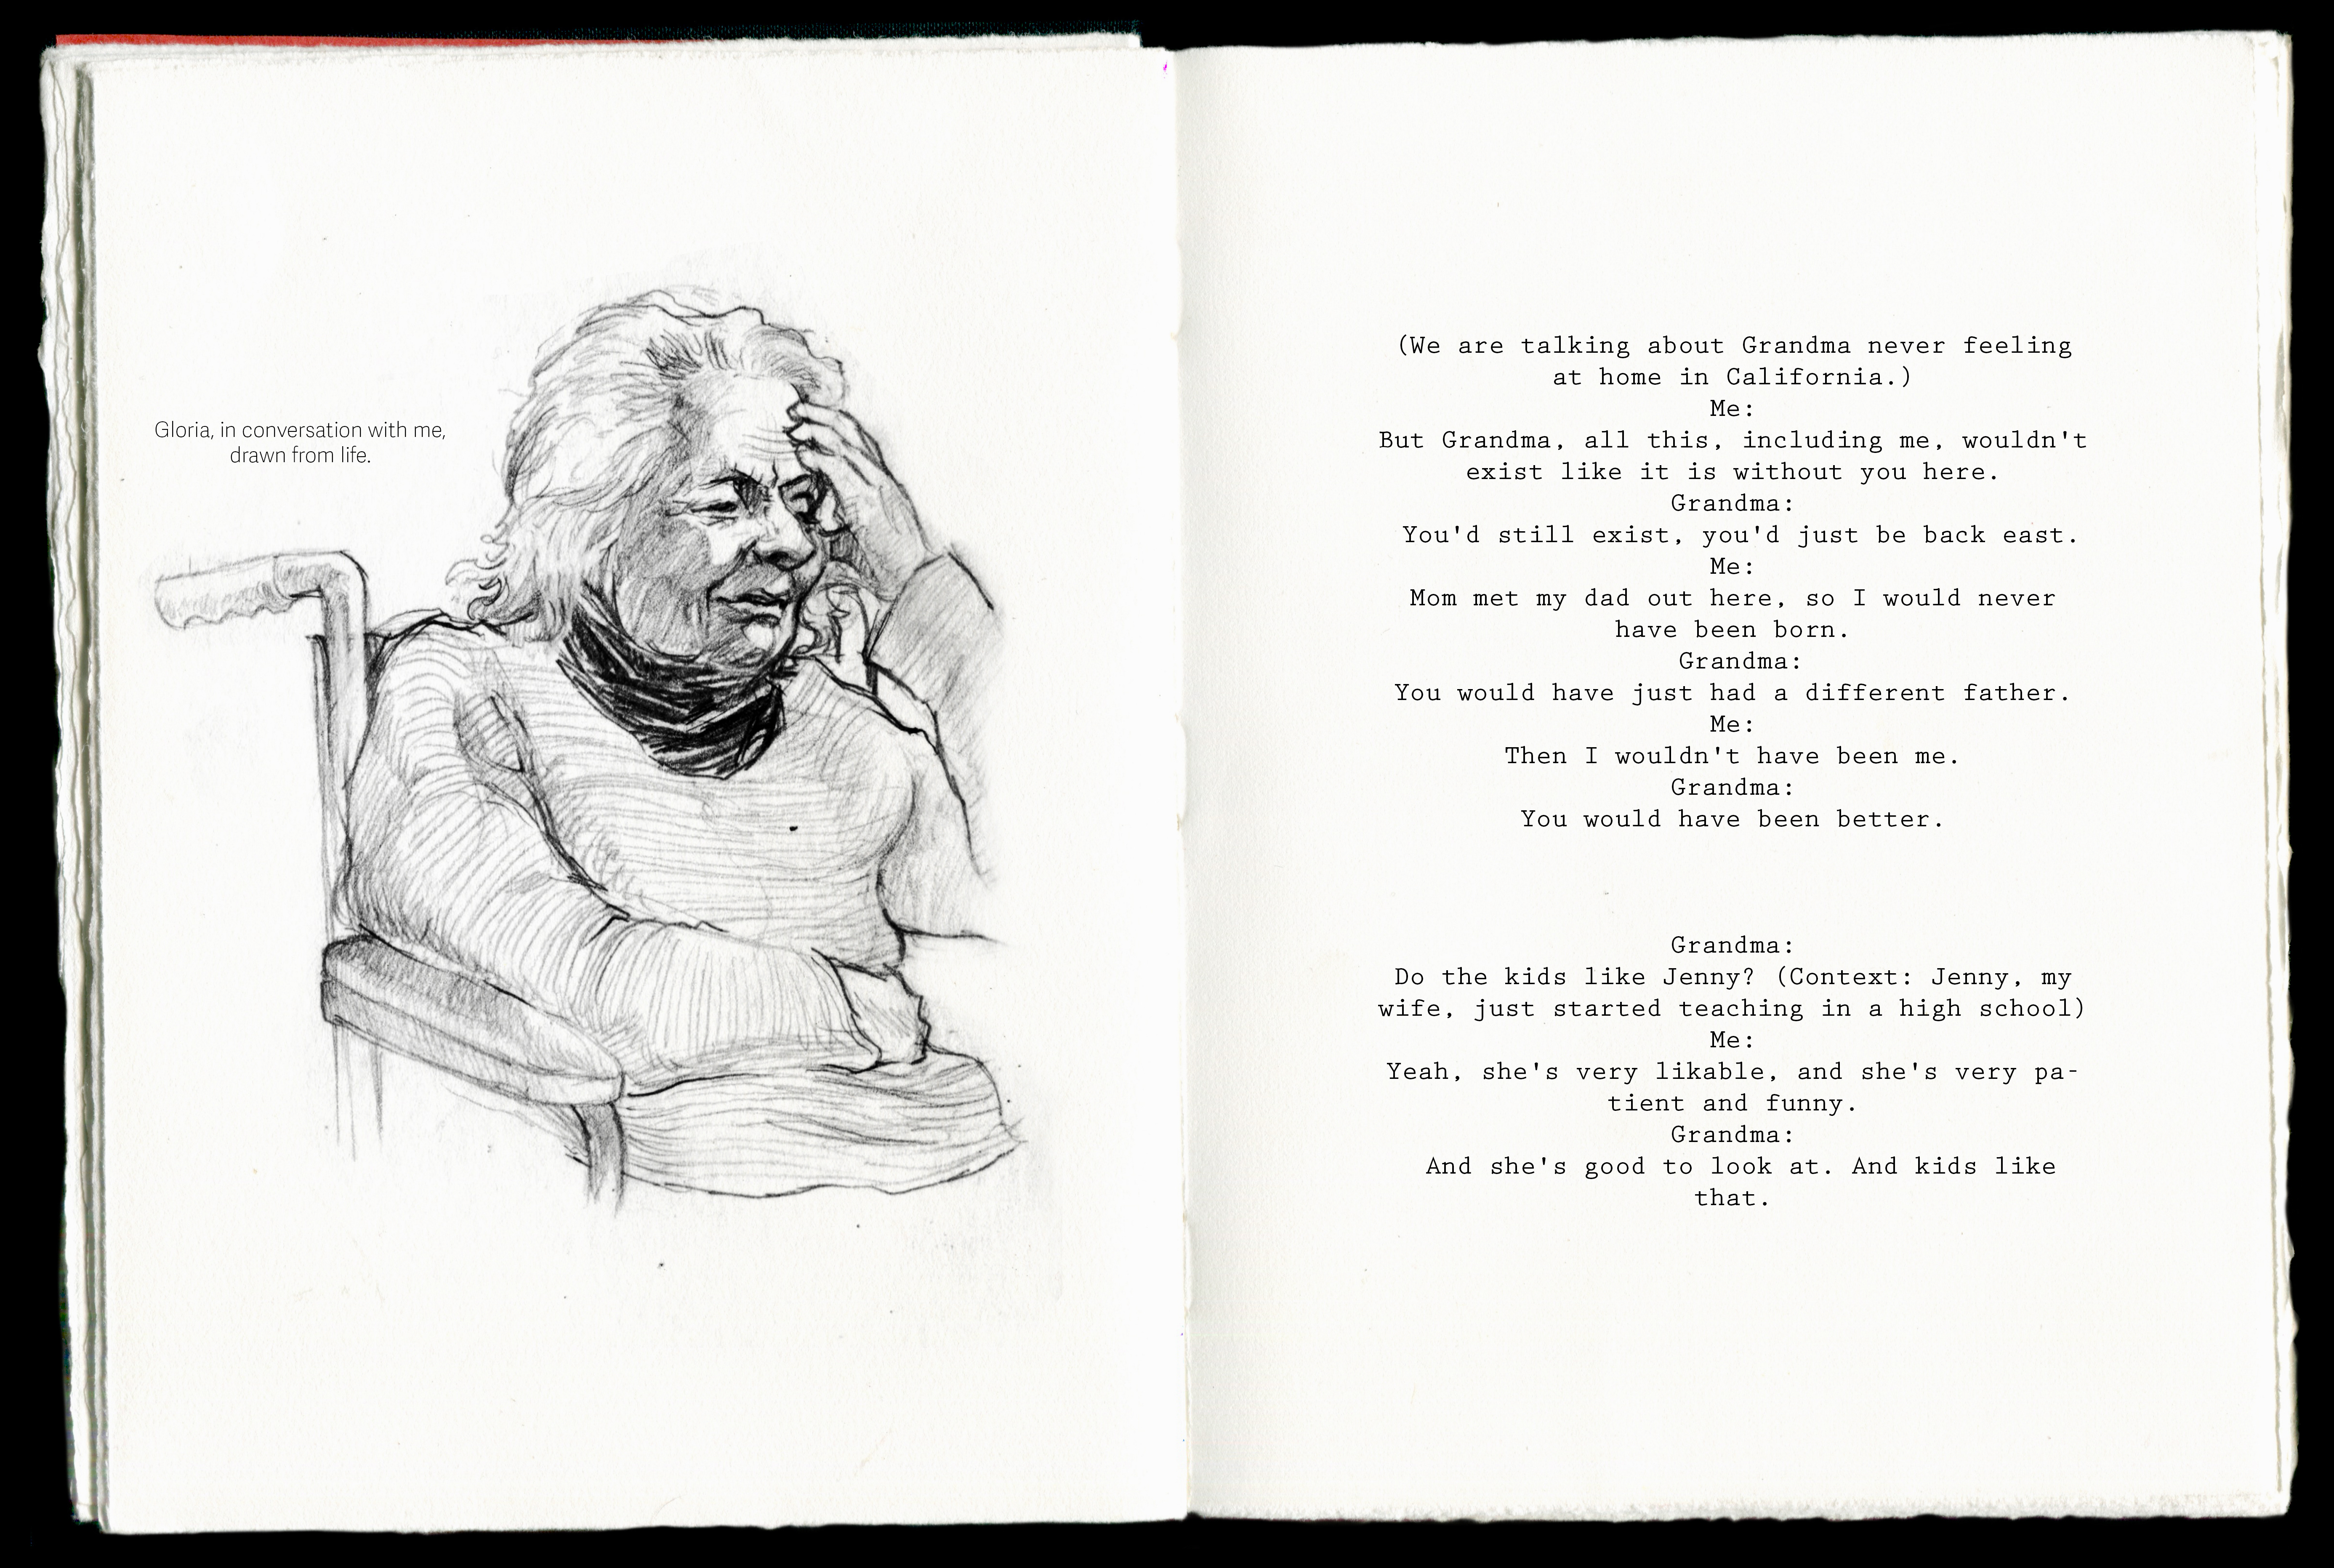 Gloria, in conversation with me,
drawn from life.
(We are talking about Grandma never feeling
at home in California.)
Me:
But Grandma, all this, including me, wouldn't
exist like it is without you here.
Grandma:
You'd still exist, you'd just be back east.
Me:
Mom met my dad out here, so I would never
have been born.
Grandma:
You would have just had a different father.
Me:
Then I wouldn't have been me.
Grandma:
You would have been better.
Grandma:
Do the kids like Jenny? (Context: Jenny, my
wife, just started teaching in a high school)
Me:
Yeah, she's very likable, and she's very pa-
tient and funny.
Grandma:
And she's good to look at. And kids like
that.